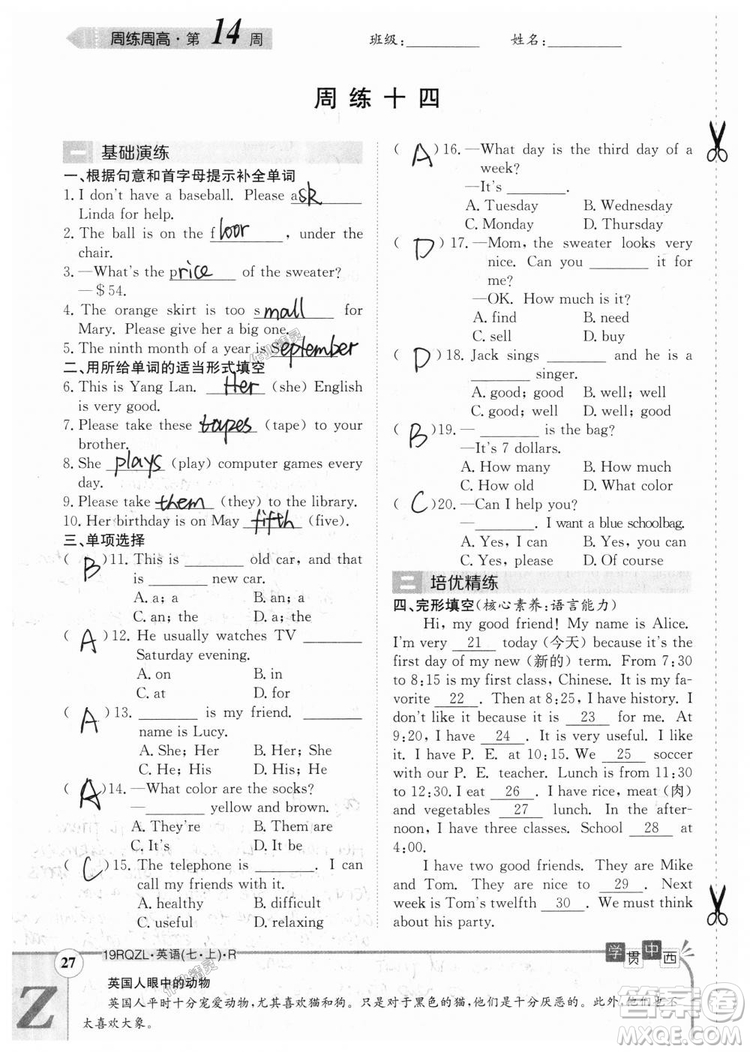 周练周高·第14周 班级: 姓名:
周 练 十 四
一 基础演练
一、根据句意和首字母提示补全单词
1. I don't have a baseball. Please ask
Linda for help.
2. The ball is on the floor, under the
chair.
3. —What's the price of the sweater?
—$54.
4. The orange skirt is too small for
Mary. Please give her a big one.
5. The ninth month of a year is September
二、用所给单词的适当形式填空
6. This is Yang Lan. Her (she) English
is very good.
7. Please take these tapes (tape) to your
brother.
8. She plays (play) computer games every
day.
9. Please take them (they) to the library.
10. Her birthday is on May fifth (five).
三、单项选择
( B )11. This is ______ old car, and that
is ______ new car.
A. a; / B. an; a
C. an; the D. a; the
( A )12. He usually watches TV ______
Saturday evening.
A. on B. in
C. at D. for
( A )13. ______ is my friend. ______
name is Lucy.
A. She; Her B. He; Her
C. He; His D. She; His
( A )14. —What color are the socks?
—______ yellow and brown.
A. They're B. Them are
C. It's D. It be
( C )15. The telephone is ______. I can
call my friends with it.
A. healthy B. difficult
C. useful D. relaxing
( A )16. —What day is the third day of a
week?
—It's ______.
A. Tuesday B. Wednesday
C. Monday D. Thursday
( D )17. —Mom, the sweater looks very
nice. Can you ______ it for
me?
—OK. How much is it?
A. find B. need
C. sell D. buy
( D )18. Jack sings ______ and he is a
______ singer.
A. good; good B. well; well
C. good; well D. well; good
( B )19. —______ is the bag?
—It's 7 dollars.
A. How many B. How much
C. How old D. What color
( C )20. —Can I help you?
—______. I want a blue schoolbag.
A. Yes, please B. Yes, you can
C. Yes, please D. Of course
二 培优精练
四、完形填空(核心素养:语言能力)
Hi, my good friend! My name is Alice.
I'm very 21 today (今天) because it's the
first day of my new (新的) term. From 7:30
to 8:15 is my first class, Chinese. It is my fa-
vorite 22. Then at 8:25, I have history! I
don't like it because it is 23 for me. At
9:20, I have 24. It is my favorite, too.
Then I have P. E. at 10:15. We 25 soccer
with our P. E. teacher. Lunch is from 11:30
to 12:30. I eat 26. I have rice, meat (肉)
and vegetables 27 lunch. In the after-
noon, I have three classes. School 28 at
4:00.
I have two good friends. They are Mike
and Tom. They are nice to 29. Next
week is Tom's twelfth 30. I must think
about his party.
27 19RQZL·英语(七·上)·R
学贯中西
Z
英国人眼中的动物
英国人平时十分宠爱动物,尤其喜欢猫和狗。只是对于黑色的猫,他们是十分厌恶的。此外,他们也不
太喜欢大象。